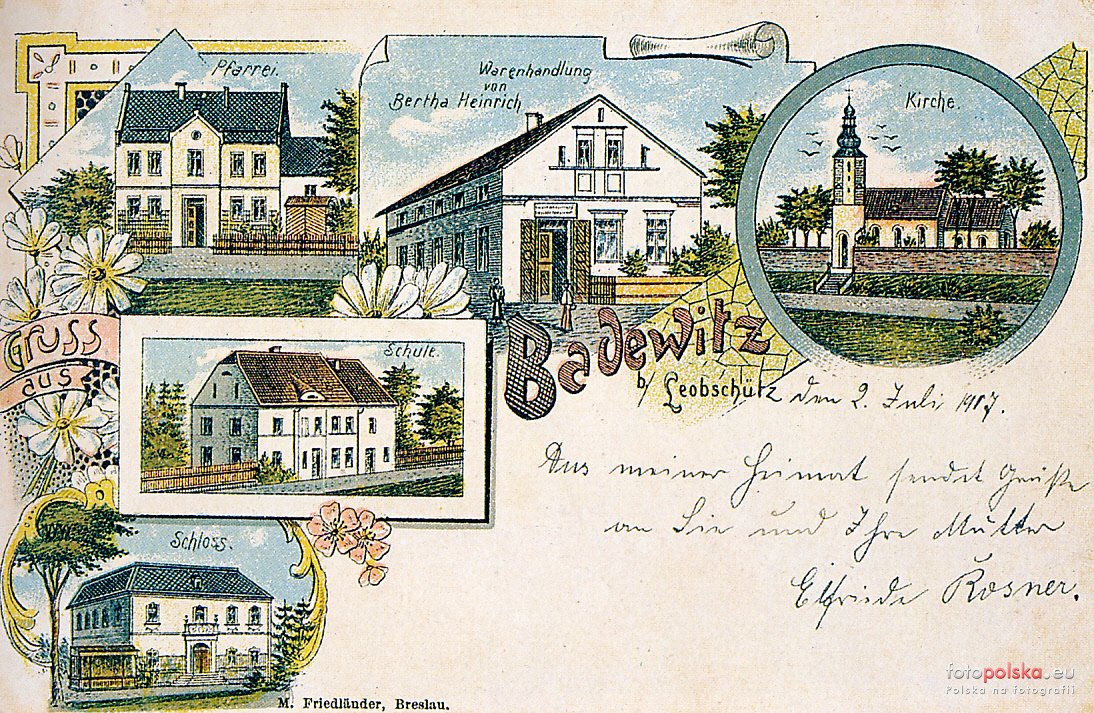 Pfarrei.
Warenhandlung
von
Bertha Heinrich
Kirche.
Gruss
aus
Badewitz
b/ Leobschütz
Schule.
Schloss.
den 2. Juli 1917.
Aus meiner Heimat sendet Grüße
an Sie und Ihre Mutter
Elfriede Rosner.
M. Friedländer, Breslau.
fotopolska.eu
Polska na fotografii